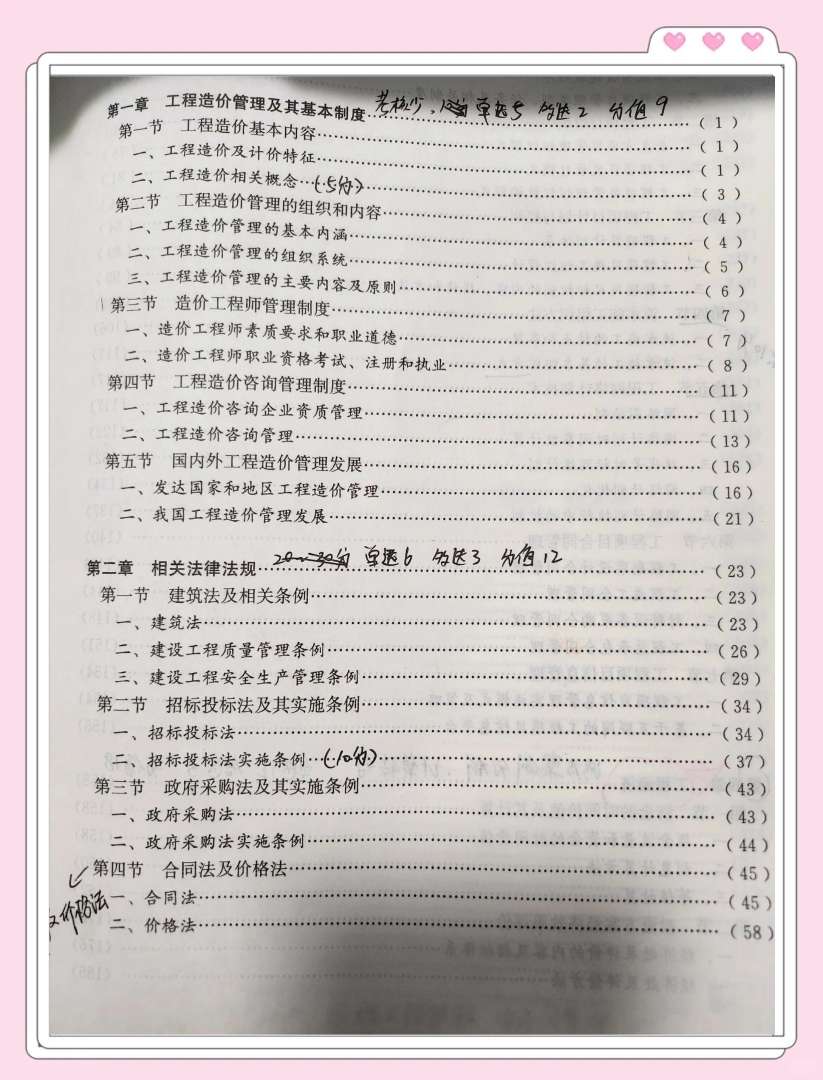 第一章 工程造价管理及其基本制度……(1) 考核少, 单选5 多选2 分值9
第一节 工程造价基本内容……(1)
一、工程造价及计价特征……(1)
二、工程造价相关概念……(5分)……(3)
第二节 工程造价管理的组织和内容……(4)
一、工程造价管理的基本内涵……(4)
二、工程造价管理的组织系统……(5)
三、工程造价管理的主要内容及原则……(6)
第三节 造价工程师管理制度……(7)
一、造价工程师素质要求和职业道德……(7)
二、造价工程师职业资格考试、注册和执业……(8)
第四节 工程造价咨询管理制度……(11)
一、工程造价咨询企业资质管理……(11)
二、工程造价咨询管理……(13)
第五节 国内外工程造价管理发展……(16)
一、发达国家和地区工程造价管理……(16)
二、我国工程造价管理发展……(21)
20-30分 单选6 多选3 分值12
第二章 相关法律法规……(23)
第一节 建筑法及相关条例……(23)
一、建筑法……(23)
二、建设工程质量管理条例……(26)
三、建设工程安全生产管理条例……(29)
第二节 招标投标法及其实施条例……(34)
一、招标投标法……(34)
二、招标投标法实施条例……(10分)……(37)
第三节 政府采购法及其实施条例……(43)
一、政府采购法……(43)
二、政府采购法实施条例……(44)
第四节 合同法及价格法……(45)
一、合同法……(45)
价格法
二、价格法……(58)